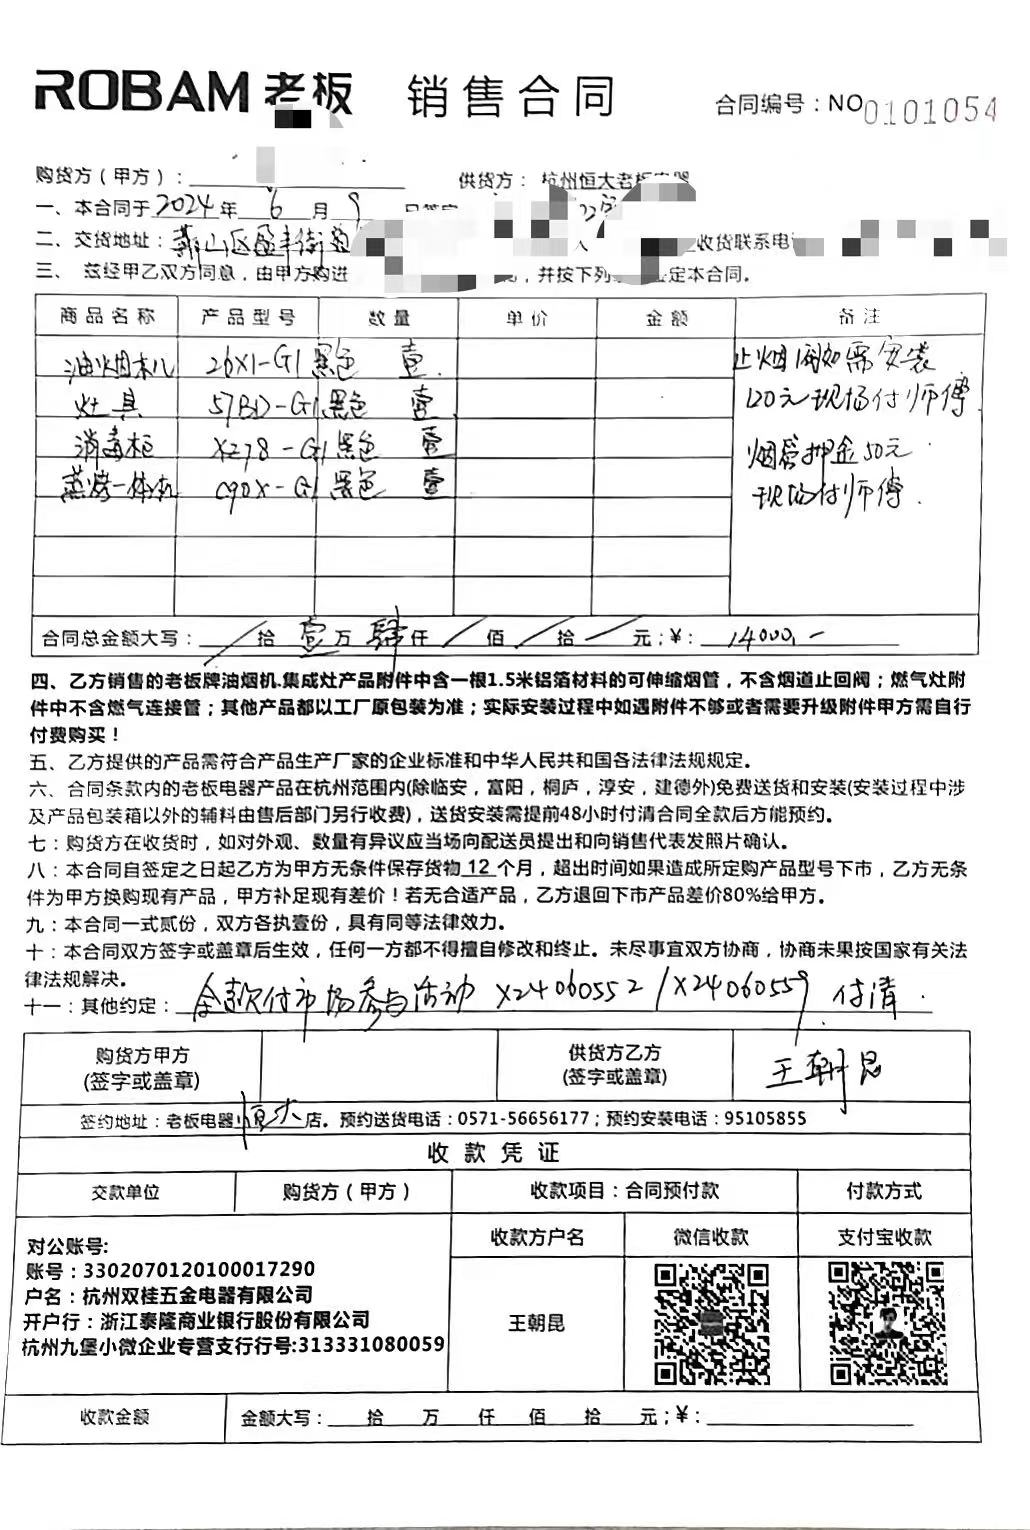 ROBAM 老板 销售合同 合同编号：NO 0101054
购货方（甲方）： 供货方： 杭州恒大老板电器
一、本合同于 2024 年 6 月 9 日签定
二、交货地址：萧山区盈丰街道 收货联系电话
三、 兹经甲乙双方同意，由甲方购进 ，并按下列 签定本合同。
商品名称 产品型号 数量 单价 金额 备注
油烟机 26X1-G1 黑色 壹 止烟阀如需安装
灶具 57BD-G1 黑色 壹 120元现场付师傅
消毒柜 XZ78-G1 黑色 壹 烟管押金50元
蒸烤一体机 C90X-G1 黑色 壹 现场付师傅.
合同总金额大写： / 拾 壹 万 肆 仟 / 佰 / 拾 / 元；¥： 14000.-
四、乙方销售的老板牌油烟机.集成灶产品附件中含一根1.5米铝箔材料的可伸缩烟管，不含烟道止回阀；燃气灶附
件中不含燃气连接管；其他产品都以工厂原包装为准；实际安装过程中如遇附件不够或者需要升级附件甲方需自行
付费购买！
五、乙方提供的产品需符合产品生产厂家的企业标准和中华人民共和国各法律法规规定。
六、合同条款内的老板电器产品在杭州范围内(除临安，富阳，桐庐，淳安，建德外)免费送货和安装(安装过程中涉
及产品包装箱以外的辅料由售后部门另行收费)，送货安装需提前48小时付清合同全款后方能预约。
七：购货方在收货时，如对外观、数量有异议应当场向配送员提出和向销售代表发照片确认。
八：本合同自签定之日起乙方为甲方无条件保存货物 12 个月，超出时间如果造成所定购产品型号下市，乙方无条
件为甲方换购现有产品，甲方补足现有差价！若无合适产品，乙方退回下市产品差价80%给甲方。
九：本合同一式贰份，双方各执壹份，具有同等法律效力。
十：本合同双方签字或盖章后生效，任何一方都不得擅自修改和终止。未尽事宜双方协商，协商未果按国家有关法
律法规解决。
十一：其他约定： 全款付市场参与活动 X24060552/X24060559 付清.
购货方甲方 供货方乙方 王朝昆
(签字或盖章) (签字或盖章)
签约地址：老板电器 恒大 店。预约送货电话：0571-56656177；预约安装电话：95105855
收款凭证
交款单位 购货方（甲方） 收款项目：合同预付款 付款方式
收款方户名 微信收款 支付宝收款
对公账号:
账号：3302070120100017290
户名：杭州双桂五金电器有限公司
开户行：浙江泰隆商业银行股份有限公司
杭州九堡小微企业专营支行行号:313331080059
王朝昆
收款金额 金额大写： 拾 万 仟 佰 拾 元；¥：